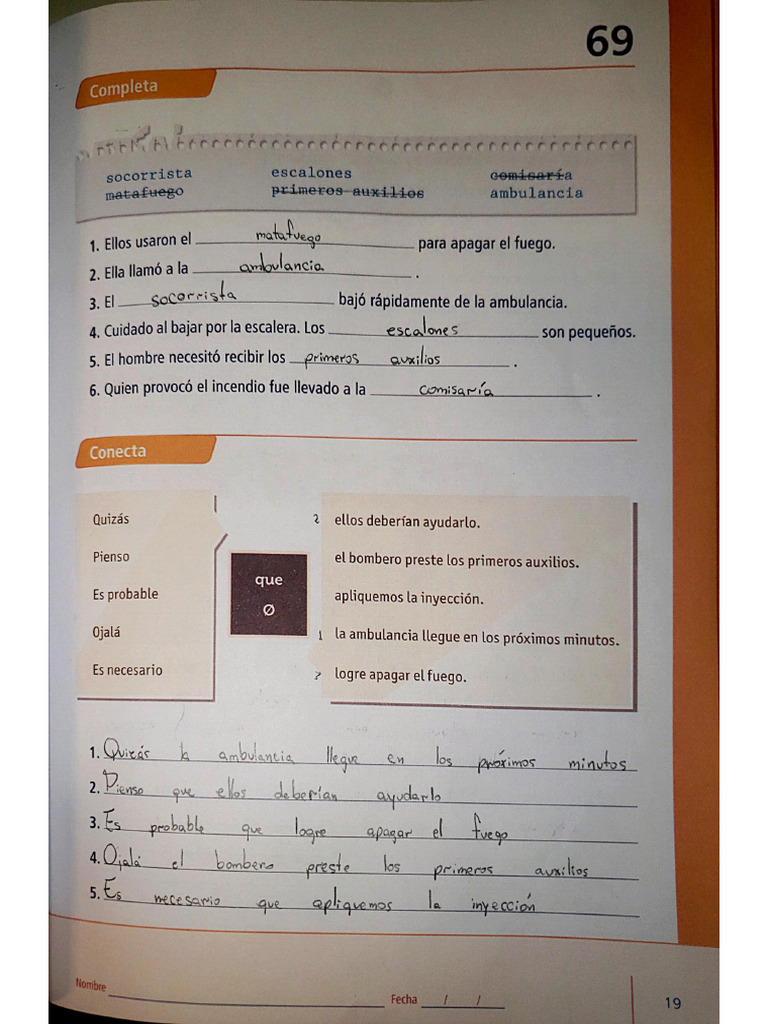 69
Completa
socorrista escalones comisaría
matafuego primeros auxilios ambulancia
1. Ellos usaron el matafuego para apagar el fuego.
2. Ella llamó a la ambulancia.
3. El socorrista bajó rápidamente de la ambulancia.
4. Cuidado al bajar por la escalera. Los escalones son pequeños.
5. El hombre necesitó recibir los primeros auxilios.
6. Quien provocó el incendio fue llevado a la comisaría.
Conecta
Quizás 2 ellos deberían ayudarlo.
Pienso el bombero preste los primeros auxilios.
que
Es probable apliquemos la inyección.
Ø
Ojalá 1 la ambulancia llegue en los próximos minutos.
Es necesario logre apagar el fuego.
1. Quizás la ambulancia llegue en los próximos minutos
2. Pienso que ellos deberían ayudarlo
3. Es probable que logre apagar el fuego
4. Ojalá el bombero preste los primeros auxilios
5. Es necesario que apliquemos la inyección
Nombre Fecha / /
19